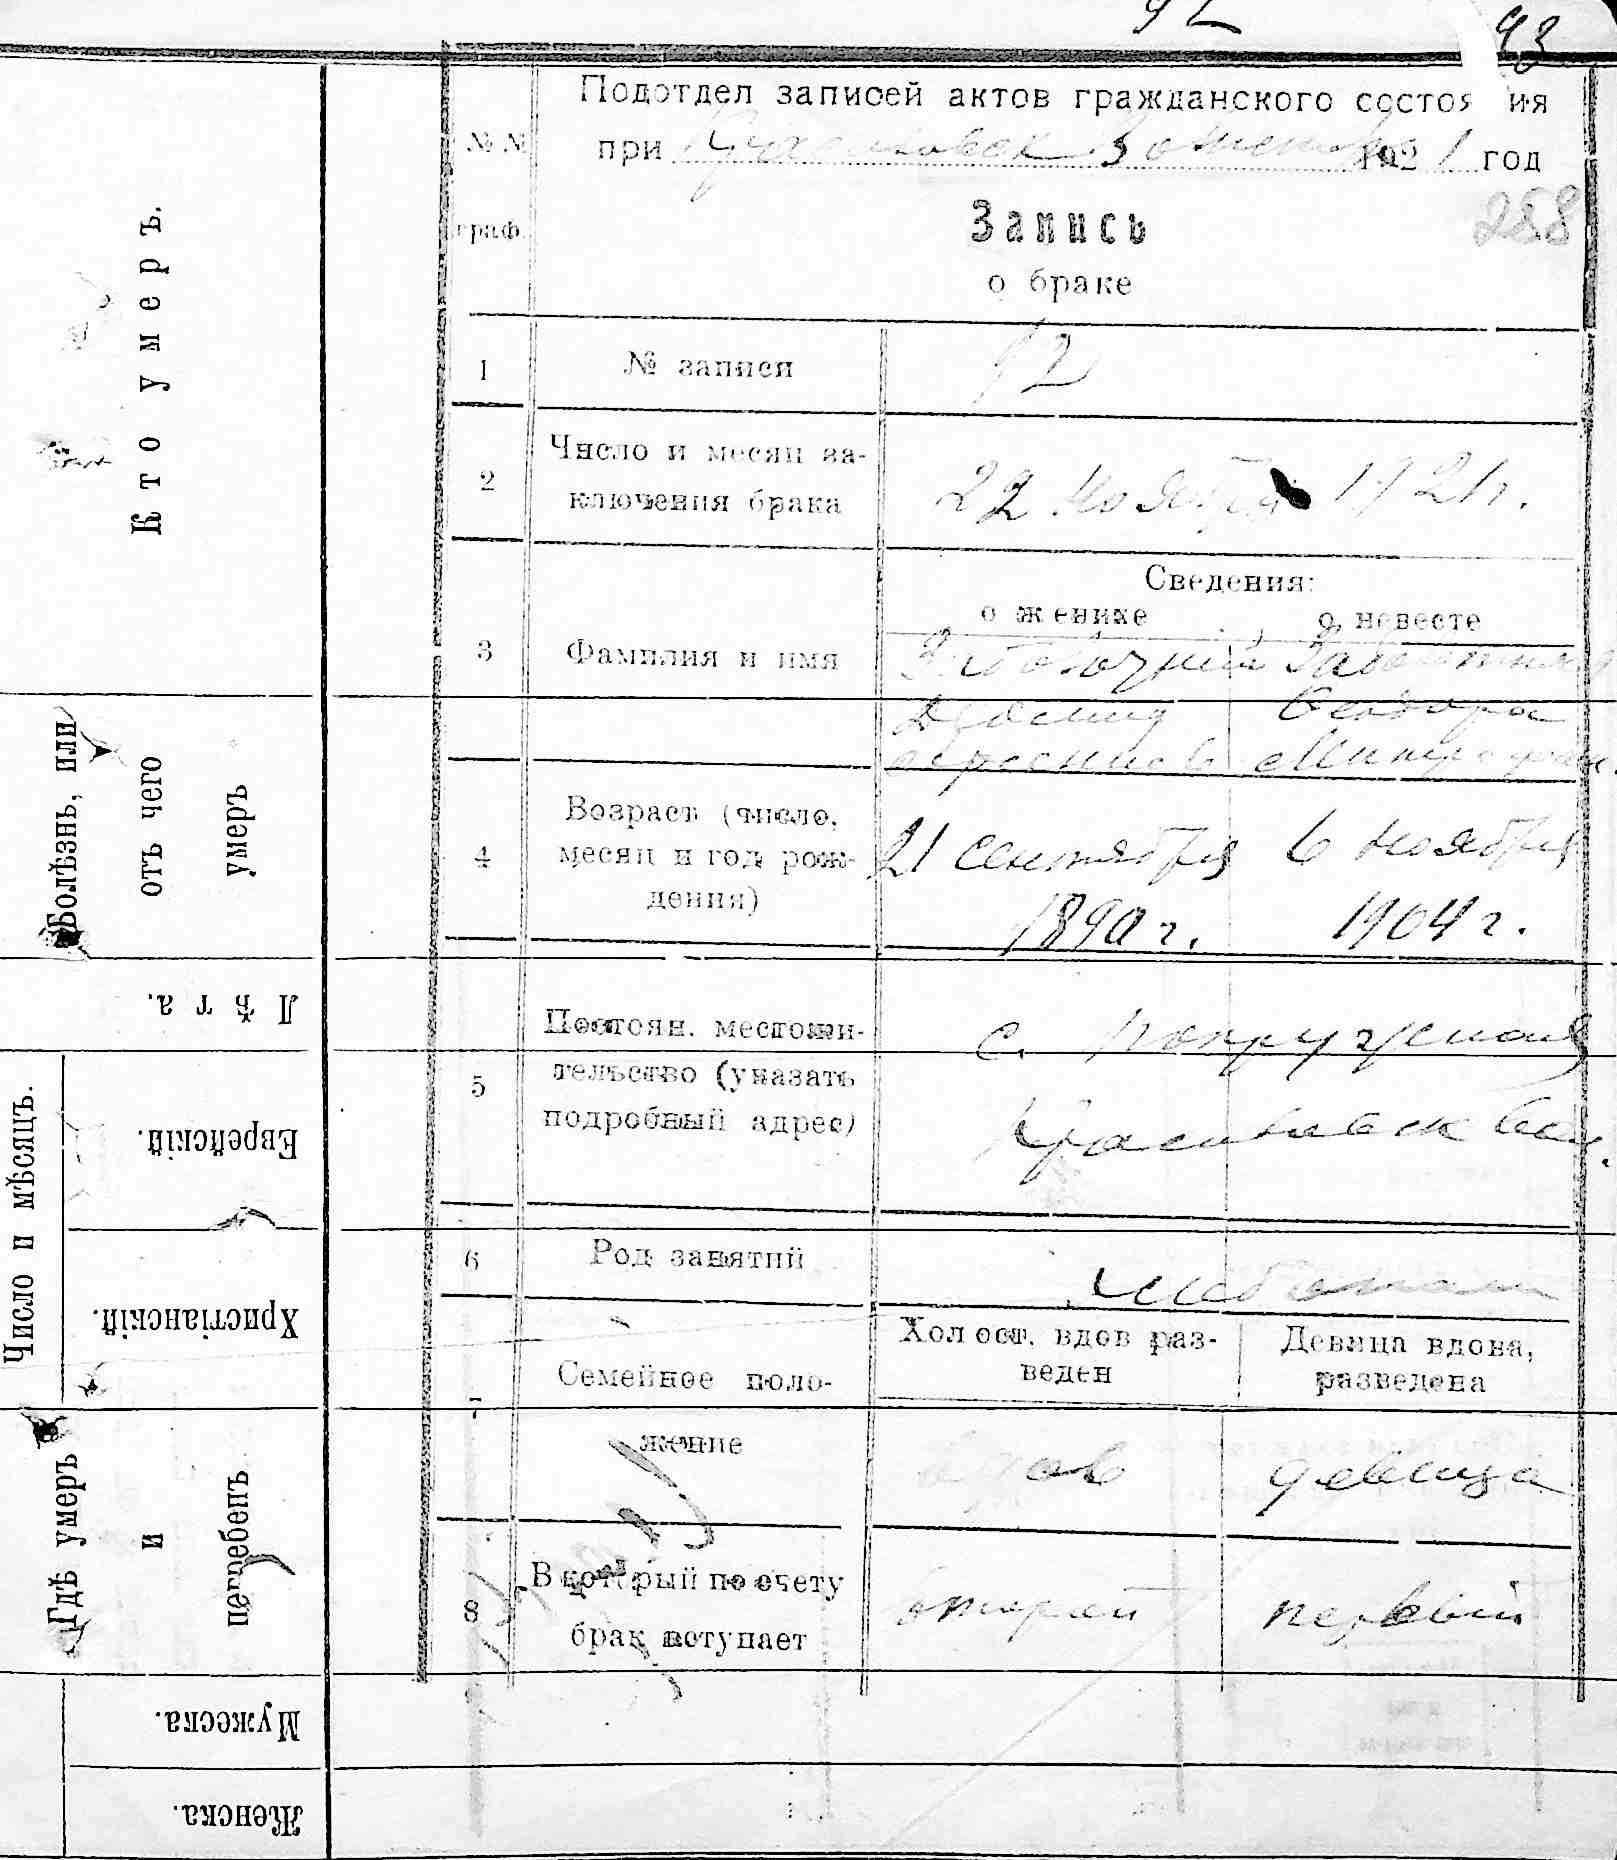 92
93
Подотдел записей актов гражданского состояния
№№ граф.
при 1921 год
288
Запись
о браке
1 № записи 92
2 Число и месяц за-
ключения брака 22 ноября 1921 г.
Сведения:
о женихе о невесте
3 Фамилия и имя
Феодора
4 Возраст (число,
месяц и год рож-
дения)
21 сентября 6 ноября
1890 г. 1904 г.
5 Постоян. местожи-
тельство (указать
подробный адрес)
с.
вол.
6 Род занятий
7 Семейное поло-
жение
Холост. вдов раз-
веден
Девица вдова,
разведена
вдов девица
8 В который по счету
брак вступает
второй первый
Кто умеръ.
Болѣзнь, или
отъ чего
умеръ
Лѣта.
Число и мѣсяцъ.
Еврейскій.
Христіанскій.
Гдѣ умеръ
и
погребенъ
Мужеска.
Женска.